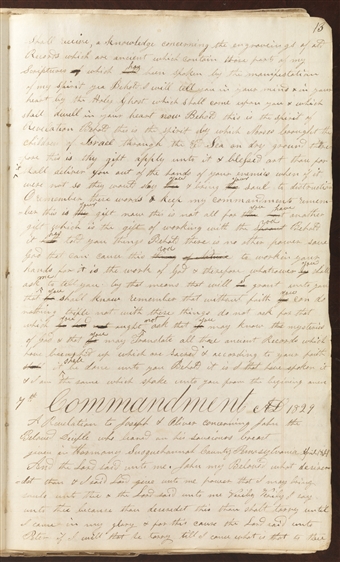 13
shall receive, a knowledge concerning the engravings of old
Records which are ancient which contain those parts of my
Scriptures of which have been spoken by the manifestation
of my spirit yea Behold I will tell you in your mind & in your
heart by the Holy Ghost which shall come upon you & which
shall dwell in your heart now Behold this is the spirit of
revelation Behold this is the spirit by which Moses brought the
children of Israel through the red Sea on dry ground therefore
this is thy gift apply unto it & blessed art thou for
shall deliver you out of the hands of your enemies when if it
were not so they would slay & bring your soul to distruction
O remember these words & keep my commandments remem
ber this is thy gift now this is not all for another
gift which is the gift of working with the Behold
it has told you things Behold there is no other power save
God that can cause this to work in your
hands for it is the work of God & therefore whatsoever shall
ask to tell you by that means that will grant unto you
that shall know remember that without faith you can do
nothing trifle not with these things do not ask for that
which ought not ask that you may know the mysteries
of God & that you may Translate all those ancient Records which
have been hid up which are sacred & according to your faith
shall it be done unto you Behold it is I that have spoken it
& I am the same which spake unto you from the begining amen
7th Commandment AD 1829
A Revelation to Joseph & Oliver concerning John the
Beloved Deciple who leaned on his saveiours breast
given in Harmony Susquehannah County Pennsylvania April 1829
And the Lord said unto me, John my Beloved what desirest
thou & I said Lord give unto me power that I may bring
souls unto thee & the Lord said unto me Verily Verily I say
unto thee because thou desiredst this thou shalt tarry untill
I come in my glory & for this cause the Lord said unto
Peter if I will that he tarry till I come what is that to thee